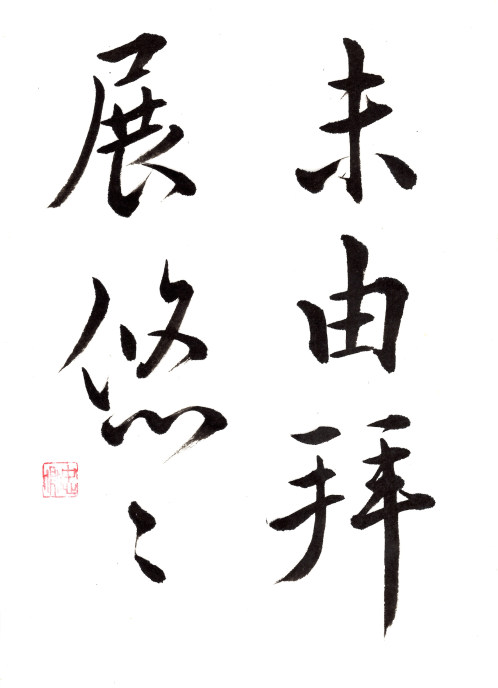 未由拜
展悠〻